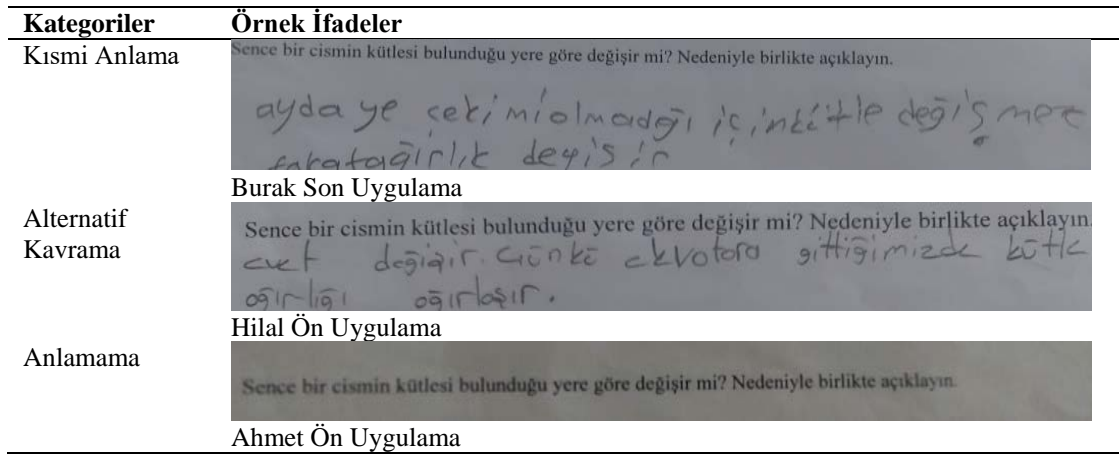 Kategoriler Örnek İfadeler
Kısmi Anlama
Sence bir cismin kütlesi bulunduğu yere göre değişir mi? Nedeniyle birlikte açıklayın.
ayda ye çekimiolmadğı için kütle değişmez
fakatağırlık deyişir
Burak Son Uygulama
Alternatif
Kavrama
Sence bir cismin kütlesi bulunduğu yere göre değişir mi? Nedeniyle birlikte açıklayın.
evet değişir. Çünkü ekvatora gittiğimizde kütle
ağırlığı ağırlaşır.
Hilal Ön Uygulama
Anlamama
Sence bir cismin kütlesi bulunduğu yere göre değişir mi? Nedeniyle birlikte açıklayın.
Ahmet Ön Uygulama